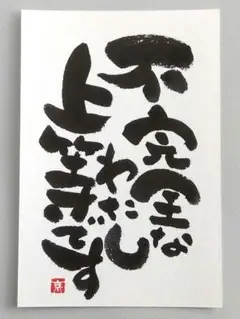 不完全な
わたし
上等です
京